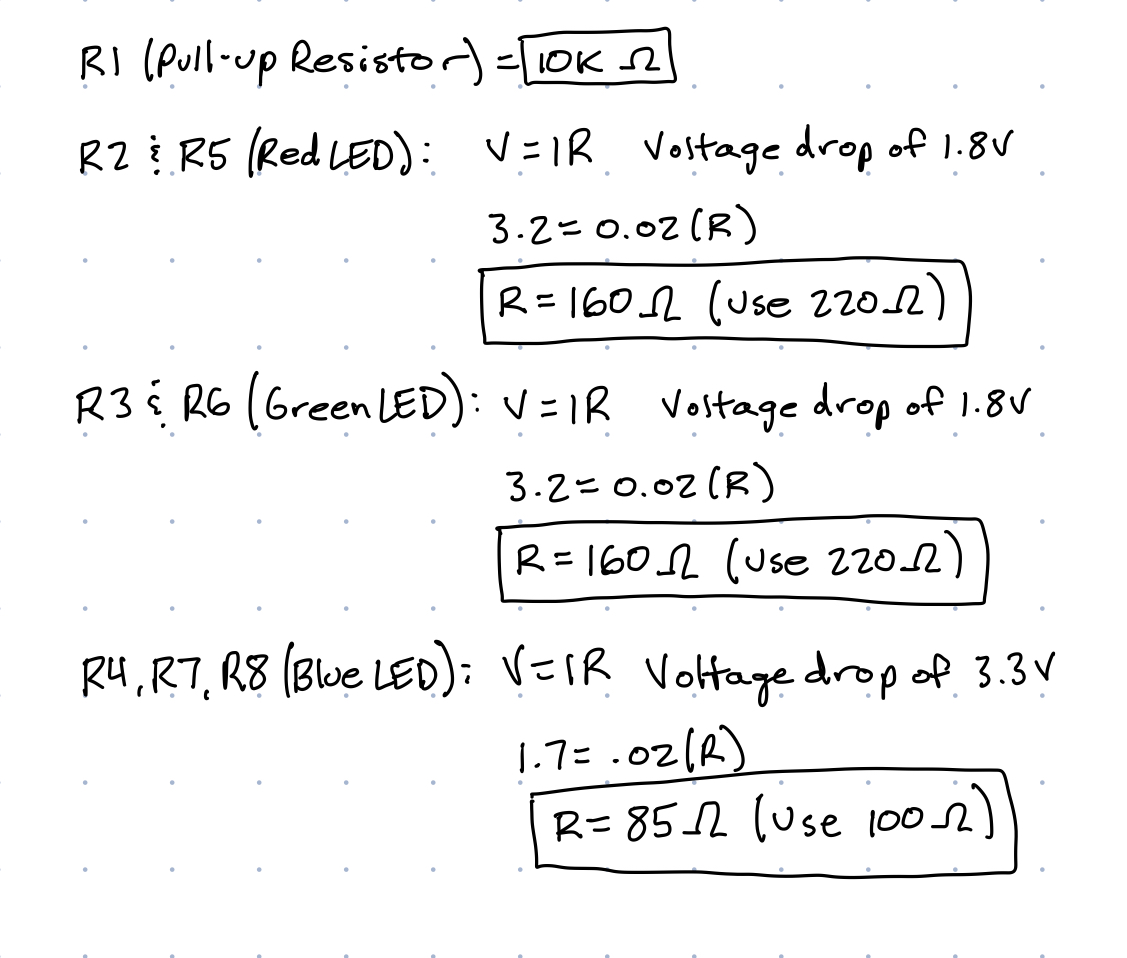 R1 (Pull-up Resistor) = 10K Ω
R2 & R5 (Red LED): V = IR Voltage drop of 1.8V
3.2 = 0.02 (R)
R = 160 Ω (Use 220 Ω)
R3 & R6 (Green LED): V = IR Voltage drop of 1.8V
3.2 = 0.02 (R)
R = 160 Ω (Use 220 Ω)
R4, R7, R8 (Blue LED): V = IR Voltage drop of 3.3V
1.7 = .02 (R)
R = 85 Ω (Use 100 Ω)